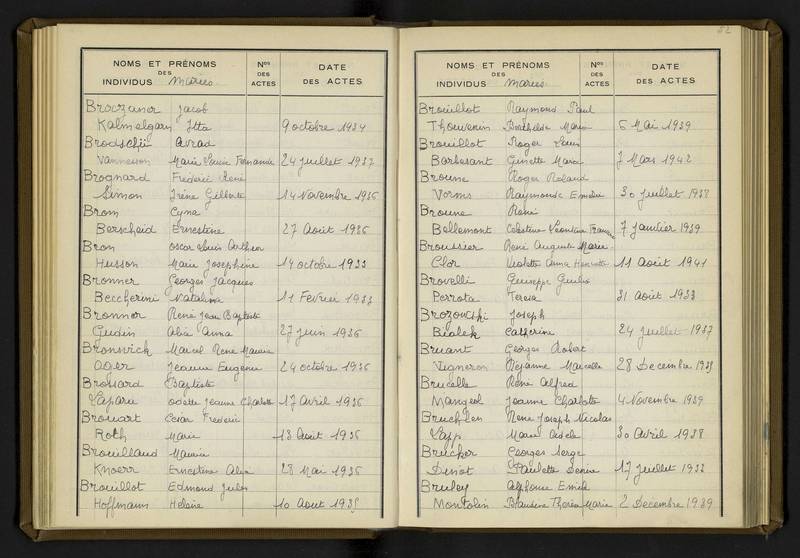 NOMS ET PRÉNOMS Nos DATE
DES DES
INDIVIDUS Mariés ACTES DES ACTES
Brocziner Jacob
Kalmelgarn Itta 9 octobre 1934
Brodschii Avrad
Vannesson Marie Louise Fernande 24 juillet 1937
Brognard Frédéric René
Simon Irène Gilberte 14 Novembre 1936
Brom Cyna
Berscheid Ernestine 27 Août 1936
Bron Oscar Louis Arthur
Husson Marie Joséphine 14 octobre 1933
Bronner Georges Jacques
Beccherini Natalina 11 Fevrier 1933
Bronner René Jean Baptiste
Gudin Alia Anna 27 juin 1936
Bronwick Marcel René Maurice
Oger Jeanne Eugenie 24 octobre 1936
Brossard Baptiste
Laparu Odette Jeanne Charlotte 17 Avril 1936
Brouart César Frederic
Roth Marie 13 Août 1936
Brouilland Maurice
Knoerr Ernestine 28 Mai 1936
Brouillot Edmond Jules
Hoffmann Hélène 10 Aout 1935
52
NOMS ET PRÉNOMS Nos DATE
DES DES
INDIVIDUS Mariés ACTES DES ACTES
Brouillot Raymond Paul
Thouvenin Berthilde Marie 6 Mai 1939
Brouillot Roger Louis
Barbesant Ginette Marie 7 Mars 1942
Broune Roger Roland
Vorms Raymonde Emilie 30 juillet 1938
Broune René
Bellemont Celestine Léontine 7 janvier 1939
Broussier René Auguste Marie
Clor Violette Anna Henriette 11 Août 1941
Brovelli Guiseppe Giulio
Perrota Teresa 31 Août 1933
Brozowski Joseph
Bialek Catherine 24 juillet 1937
Bruant Georges Robert
Vigneron Rejanne Marcelle 28 Decembre 1935
Brucelle René Alfred
Mangeol Jeanne Charlotte 4 Novembre 1939
Bruchlen René Joseph Nicolas
Lapp Marie Adele 30 Avril 1938
Brucker Georges Serge
Dinot Paulette Denise 17 juillet 1933
Bruley Alphonse Emile
Montolin Blandine Theresa Marie 2 Decembre 1939